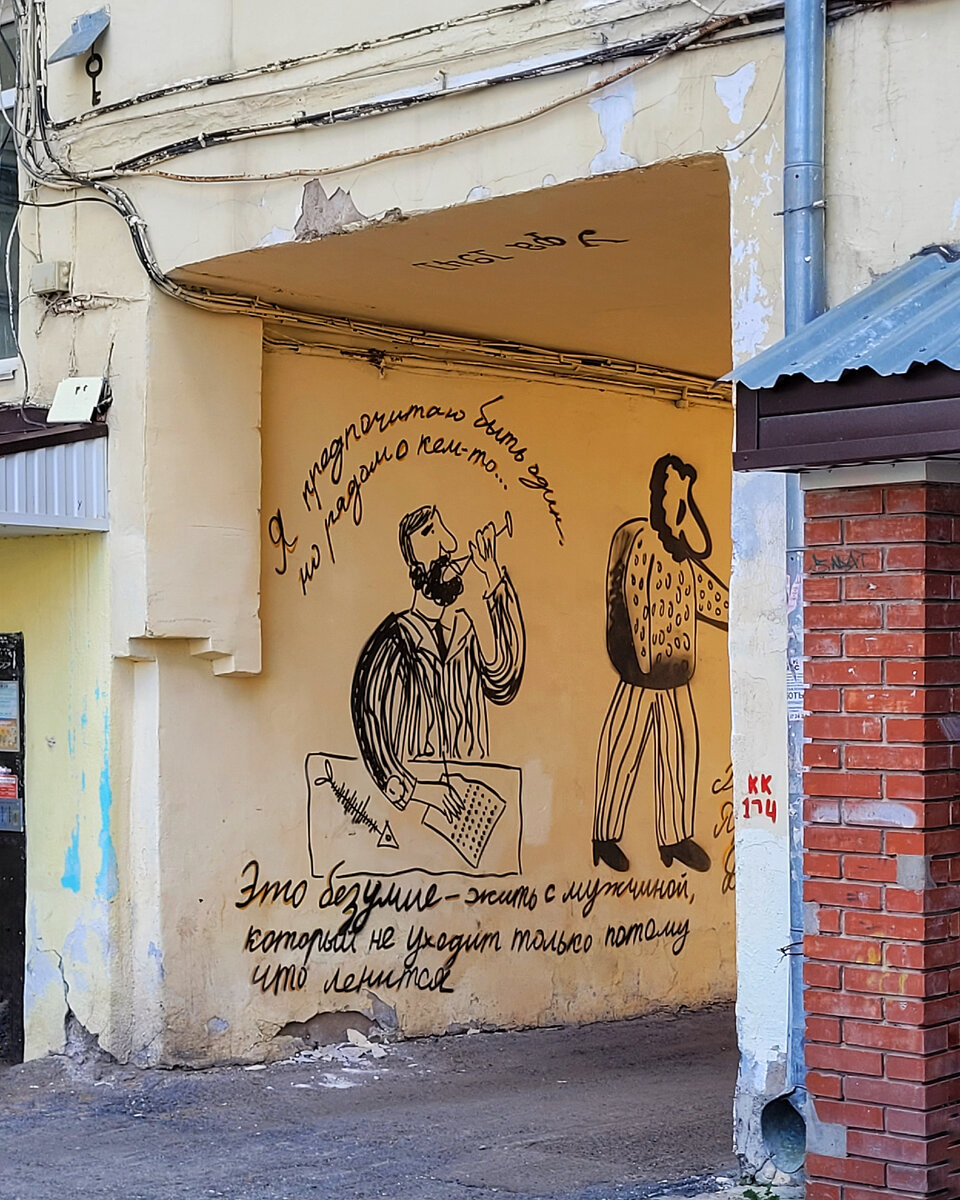 Я предпочитаю быть один
но рядом с кем-то...
Это безумие - жить с мужчиной,
который не уходит только потому
что ленится
КК
174